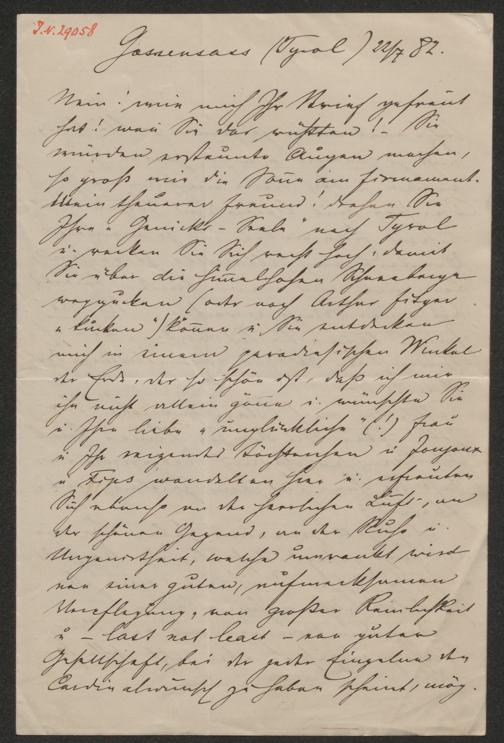 J.N. 29058
Gossensass (Tyrol) 22/7 82.
Nein! wie mich Ihr Brief gefreut
hat! wenn Sie das wüßten! – Sie
würden erstaunte Augen machen,
so groß wie die Sonne am Firmament.
Mein theuerer Freund! drehen Sie
Ihre "Genicks-Seele" nach Tyrol
u. recken Sie Sich recht hoch, damit
Sie über die himmelhohen Schneeberge
weggucken (oder nach Arthur Fitger
"kucken") können u. Sie entdecken
mich in einem paradiesischen Winkel
der Erde, der so schön ist, daß ich mir
ihn nicht allein gönne u. wünschte Sie
u. Ihre liebe "unglückliche" (!) Frau
u. Ihr reizendes Töchterchen u. Joujoux
u. Fips wandelten hier u. erfreuten
Sich ebenso an der herrlichen Luft, an
der schönen Gegend, an der Ruhe u.
Ungenirtheit, welche umrankt wird
von einer guten, aufmerksamen
Verpflegung, von großer Reinlichkeit
u. – last not least – von guter
Gesellschaft, bei der jeder Einzelne den
Cardinalwunsch zu haben scheint, mög-